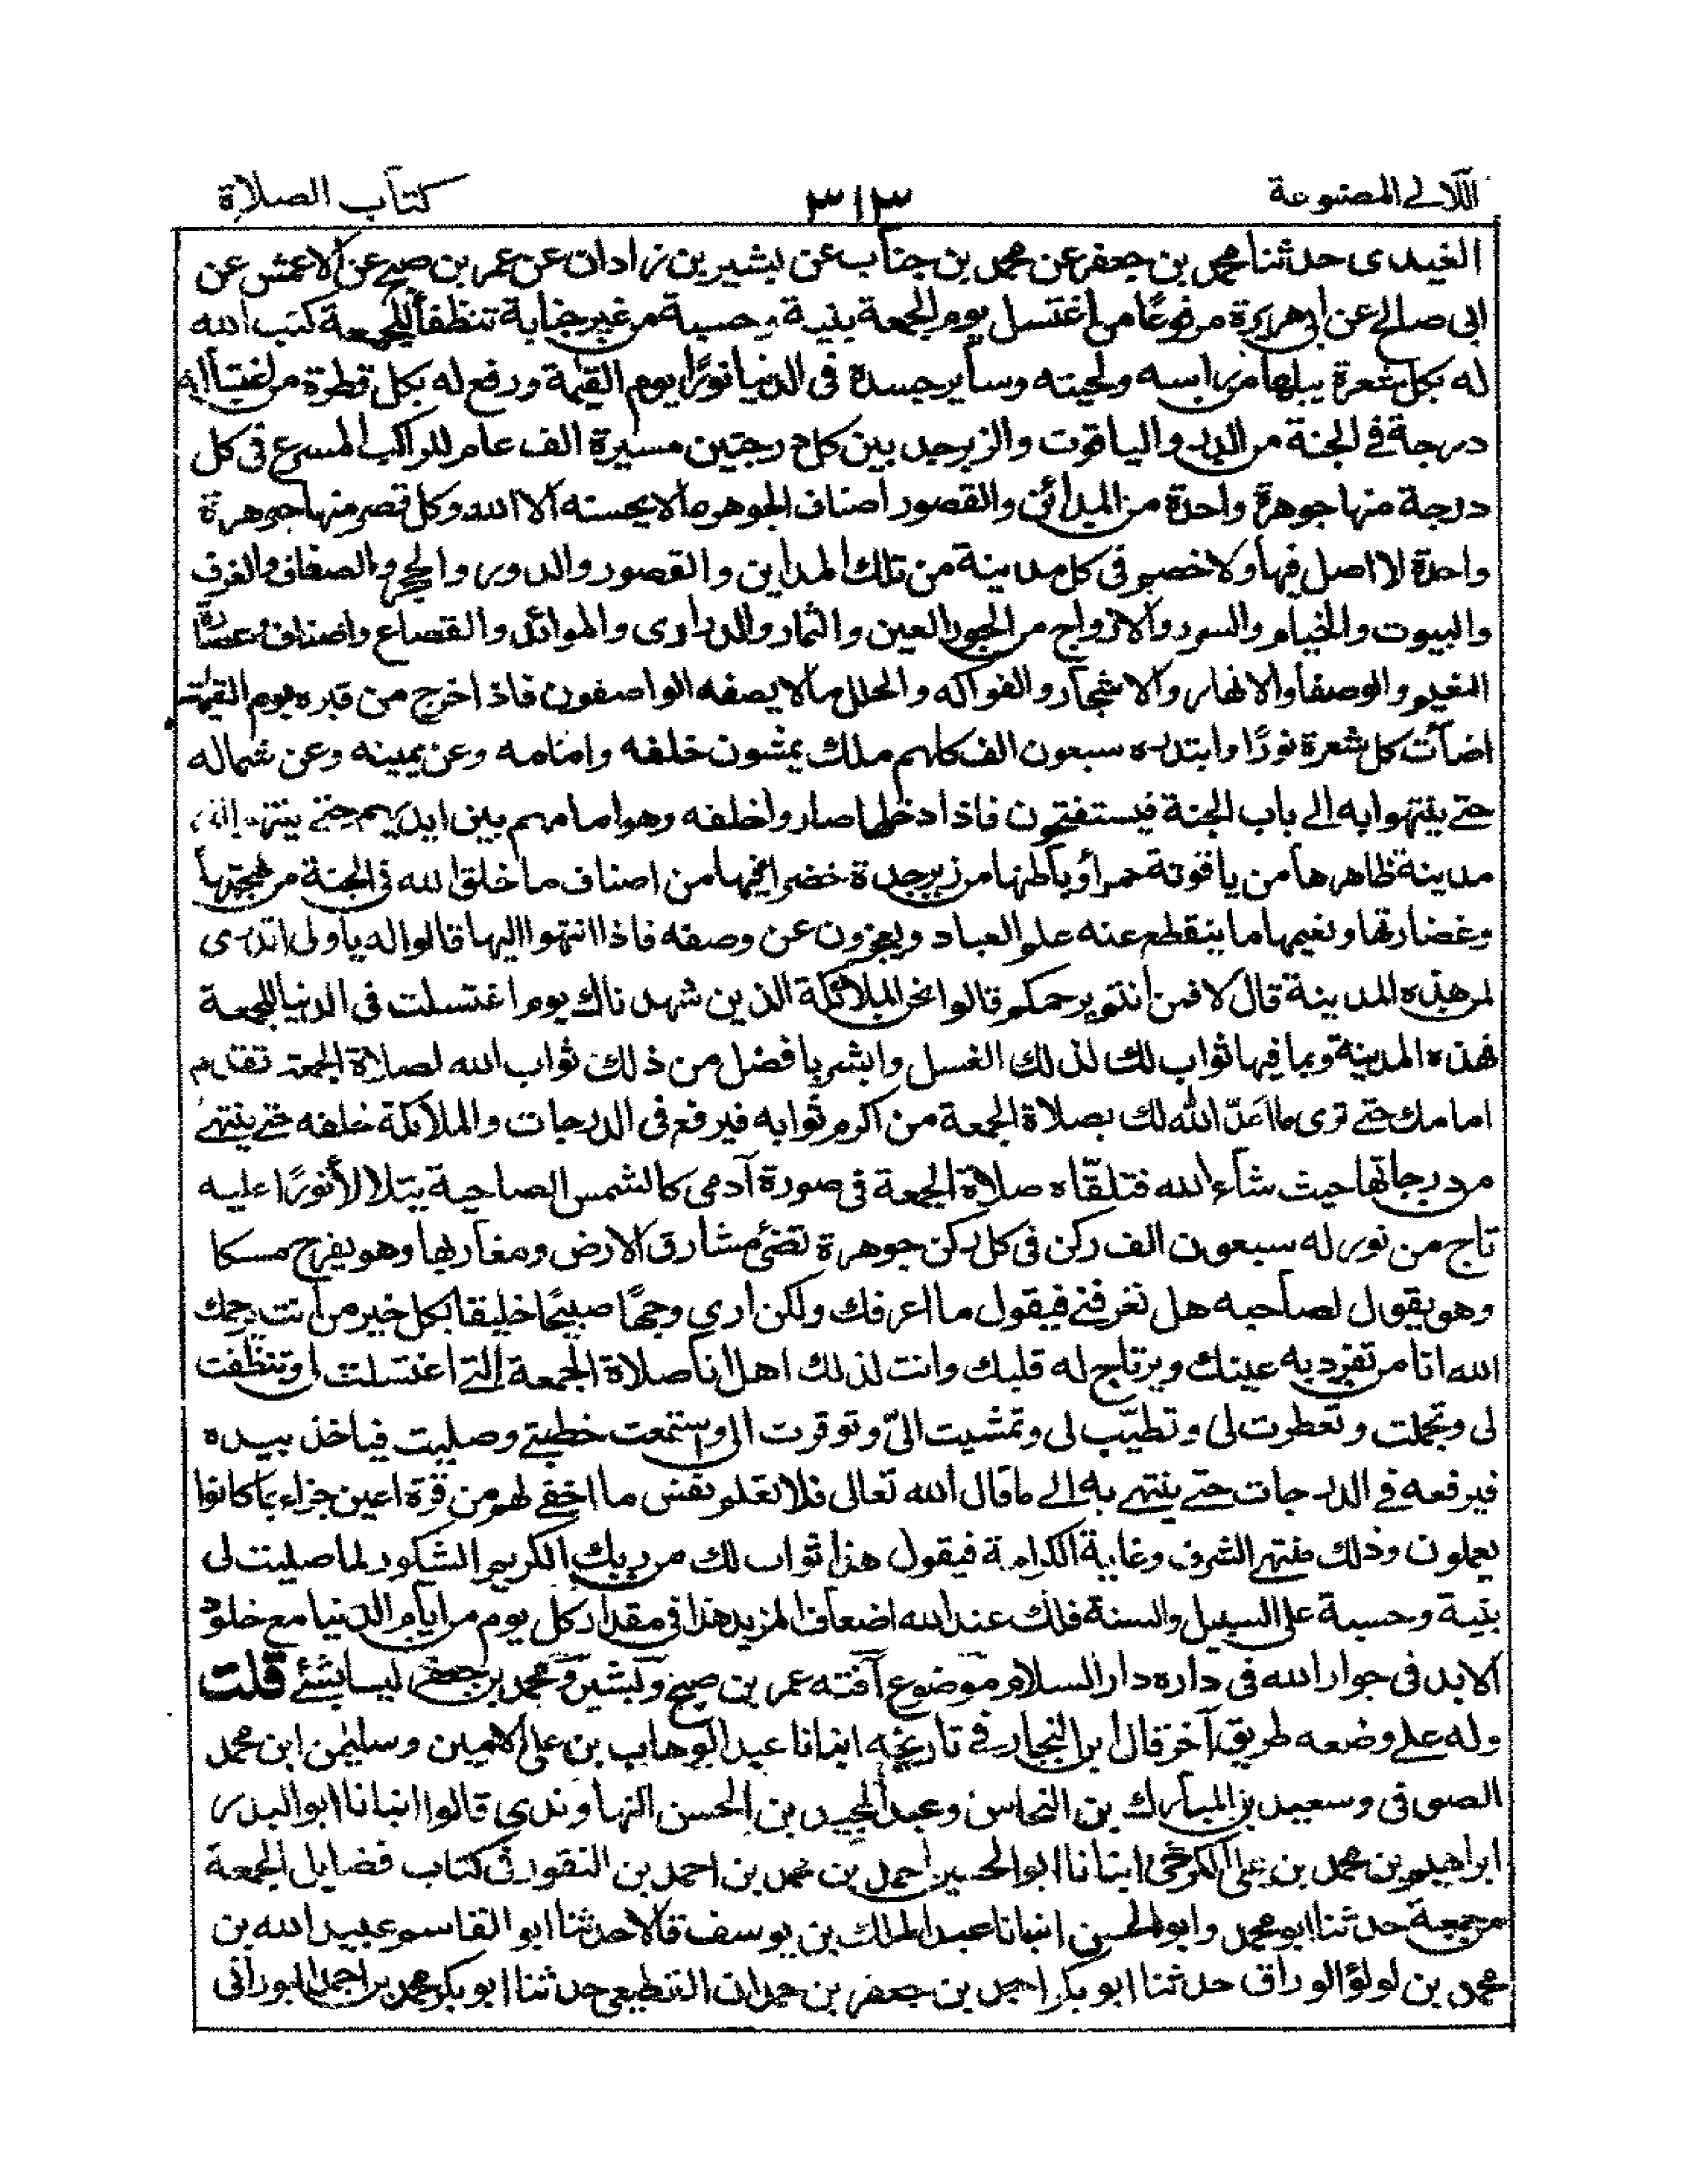 اللآلي المصنوعة
٣١٣
كتاب الصلاة
الغيدى حدثنا محمد بن جعفر عن محمد بن جناب عن بشير بن زادان عن عمر بن صبح عن الاعمش عن
ابى صالح عن ابى هريرة مرفوعًا من اغتسل يوم الجمعة بنية وحسبة من غير جنابة تنظفا للجمعة كتب الله
له بكل شعرة يبلها من راسه ولحيته وساير جسده فى الدنيا نورًا يوم القيمة ورفع له بكل قطرة من اغتساله
درجة في الجنة من الدر والياقوت والزبرجد بين كل درجتين مسيرة الف عام للراكب المسرع فى كل
درجة منها جوهرة واحدة من المدائن والقصور اصناف الجوهر ما لا يحسنه الا الله وكل قصر منها جوهرة
واحدة لا اصل فيها ولا خصم فى كل مدينة من تلك المداين والقصور والدور والحجر والصفاف والغرف
والبيوت والخيام والسرر والازواج من الحور العين والثمار والدرارى والموائد والقصاع واصناف
النعيم والوصفا والانهار والاشجار والفواكه والحلل ما لا يصفه الواصفون فاذا خرج من قبره يوم القيمة
اضآت كل شعرة نورًا وابتدره سبعون الف كلهم ملك يمشون خلفه وامامه وعن يمينه وعن شماله
حتى ينتهوا به الى باب الجنة فيستفتحون فاذا دخلها صاروا خلفه وهو امامهم بين ايديهم حتى ينتهـ الى
مدينة ظاهرها من ياقوتة حمرأ وباطنها من زبرجدة خضرا فيها من اصناف ما خلق الله فى الجنة من بهجتها
وغضارتها ونعيمها ما ينقطع عنه علم العباد ويعجزون عن وصفه فاذا انتهوا اليها قالوا له يا ولى اتدرى
لمن هذه المدينة قال لا فمن انتم يرحمكم قالوا نحن الملائكة الذين شهدناك يوم اغتسلت فى الدنيا للجمعة
فهذه المدينة وبما فيها ثواب لك لذلك الغسل وابشر بافضل من ذلك ثواب الله لصلاة الجمعة تقدم
امامك حتى ترى ما اعدّ الله لك بصلاة الجمعة من اكرم ثوابه فيرفع فى الدرجات والملائكة خلفه حتى ينتهى
من درجاتها حيث شآء الله فتلقّاه صلاة الجمعة فى صورة آدمى كالشمس الصاحية يتلالأ نورًا عليه
تاج من نور له سبعون الف ركن فى كل ركن جوهرة تضئ مشارق الارض ومغاربها وهو يفرح مسكا
وهو يقول لصاحبه هل تعرفنى فيقول ما اعرفك ولكن ارى وجهًا صبيحًا خليقا بكل خير من انت يرحمك
الله انا من تقر به عينك ويرتاح له قلبك وانت لذلك اهل انا صلاة الجمعة التى اغتسلت لى وتنظفت
لى وتجملت وتعطرت لى وتطيّب لى وتمشيت الىّ وتوقرت الى واستمعت خطبتى وصليت فياخذ بيده
فيرفعه فى الدرجات حتى ينتهى به الى ما قال الله تعالى فلا تعلم نفس ما اخفى لهم من قرة اعين جزاء بما كانوا
يعملون وذلك منتهى الشرف وغاية الكرامة فيقول هذا ثواب لك من ربك الكريم الشكور لما صليت لى
بنية وحسبة على السبيل والسنة فلك عند الله اضعاف المزيد هذا فى مقدار كل يوم من ايام الدنيا مع خلود
الابد فى جوار الله فى داره دار السلام موضوع آفته عمر بن صبح وبشير ومحمد بن جعفر ليسا بشئ قلت
وله على وضعه طريق آخر قال ابن النجار فى تاريخه انبانا عبد الوهاب بن على الامين وسليمن ابن محمد
الصوفى وسعيد بن المبارك بن النحاس وعبد المجيد بن الحسن النهاوندى قالوا انبانا ابو البدر
ابراهيم بن محمد بن على الكرخى انبانا ابو الحسين احمد بن محمد بن احمد بن النقور فى كتاب فضايل الجمعة
من جمعة حدثنا ابو محمد وابو الحسن انبانا عبد الملك بن يوسف قالا حدثنا ابو القاسم عبيد الله بن
محمد بن لولؤ الوراق حدثنا ابو بكر احمد بن جعفر بن حمدان القطيعى حدثنا ابو بكر محمد بن احمد البورانى